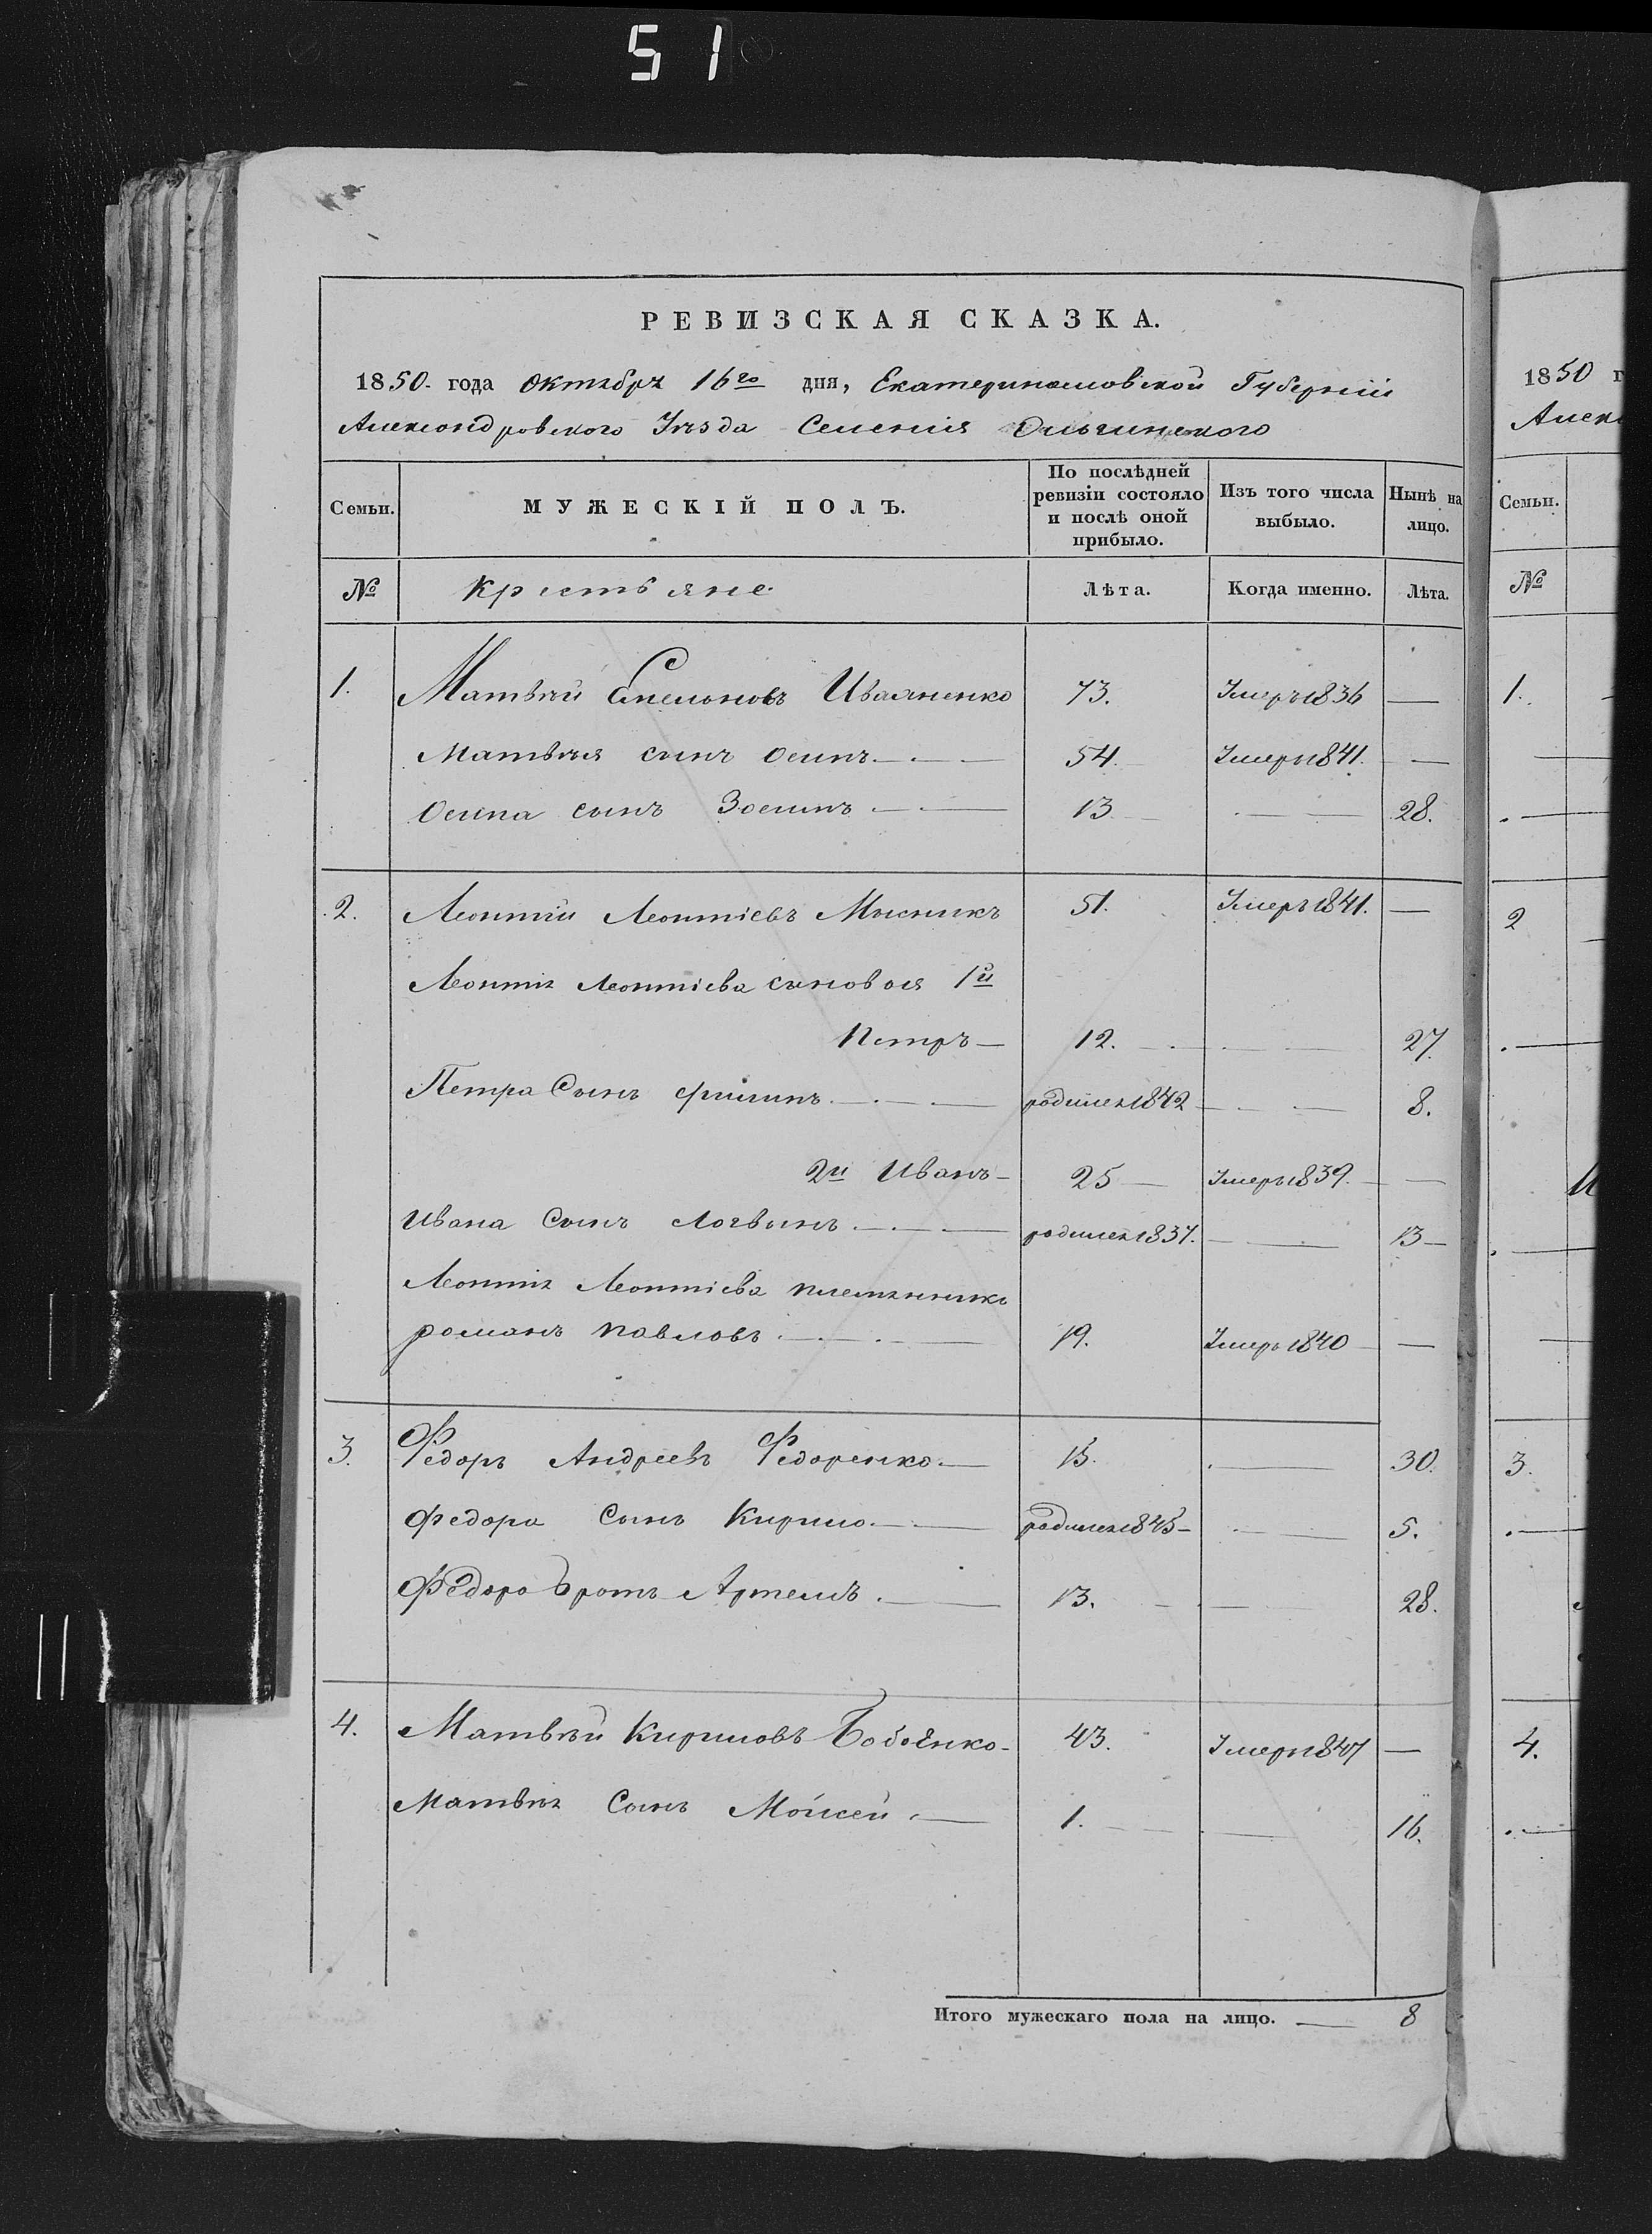 51
РЕВИЗСКАЯ СКАЗКА.
1850. года Октября 16го дня, Екатеринославской Губерніи
Александровского Уѣзда Селенія Ольгинского
Семьи. МУЖЕСКІЙ ПОЛЪ. По послѣдней ревизіи состояло и послѣ оной прибыло. Изъ того числа выбыло. Нынѣ на лицо.
№ Крестьяне Лѣта. Когда именно. Лѣта.
1. Матвѣй Емельяновъ 73. Умеръ 1836 —
Матвѣя сынъ Осипъ 54. Умеръ 1841. —
Осипа сынъ Зосимъ 13 — 28.
2. Леонтій Леонтіевъ Мисникъ 51. Умеръ 1841. —
Леонтія Леонтіева сыновья 1й
Петръ — 12. — 27.
Петра Сынъ Филипъ родился 1842 — 8.
2й Иванъ — 25 — Умеръ 1839. —
Ивана Сынъ Логвинъ родился 1837. — 13 —
Леонтія Леонтіева племянникъ
романъ Павловъ 19. Умеръ 1840 —
3. Федоръ Андреевъ Федоренко — 15. — 30.
Федора Сынъ Кирило родился 1845 — 5.
Федора братъ Артемъ 13. — 28.
4. Матвѣй Кириловъ 43. Умеръ 1847 —
Матвѣя Сынъ Мойсей 1. — 16.
Итого мужескаго пола на лицо. — 8
1850 г
Алекс
Семьи.
№
1.
2
3.
4.